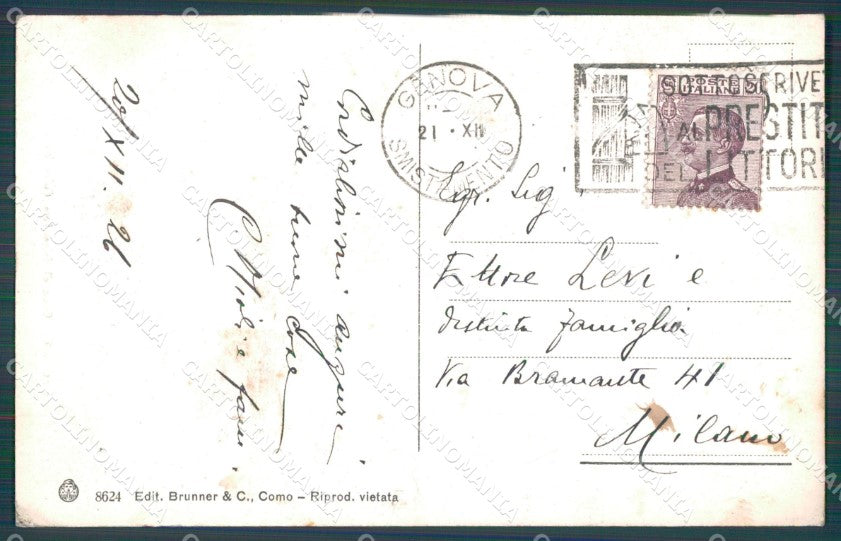 20/XII.26
Cordialissimi auguri
mille buone cose
e fam.
GENOVA
21 · XII
SMISTAMENTO
SOTTOSCRIVE
AL PRESTIT
DEL LITTORI
POSTE
ITALIANE
Egr. Sig
Ettore Levi e
distinta famiglia
Via Bramante 41
Milano
8624 Edit. Brunner & C., Como – Riprod. vietata
CARTOLINOMANIA